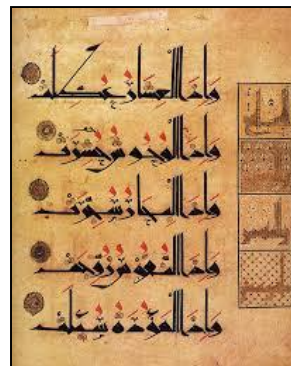 وَإِذَا الْعِشَارُ عُطِّلَتْ
وَإِذَا الْوُحُوشُ حُشِرَتْ
وَإِذَا الْبِحَارُ سُجِّرَتْ
وَإِذَا النُّفُوسُ زُوِّجَتْ
وَإِذَا الْمَوْءُدَةُ سُئِلَتْ